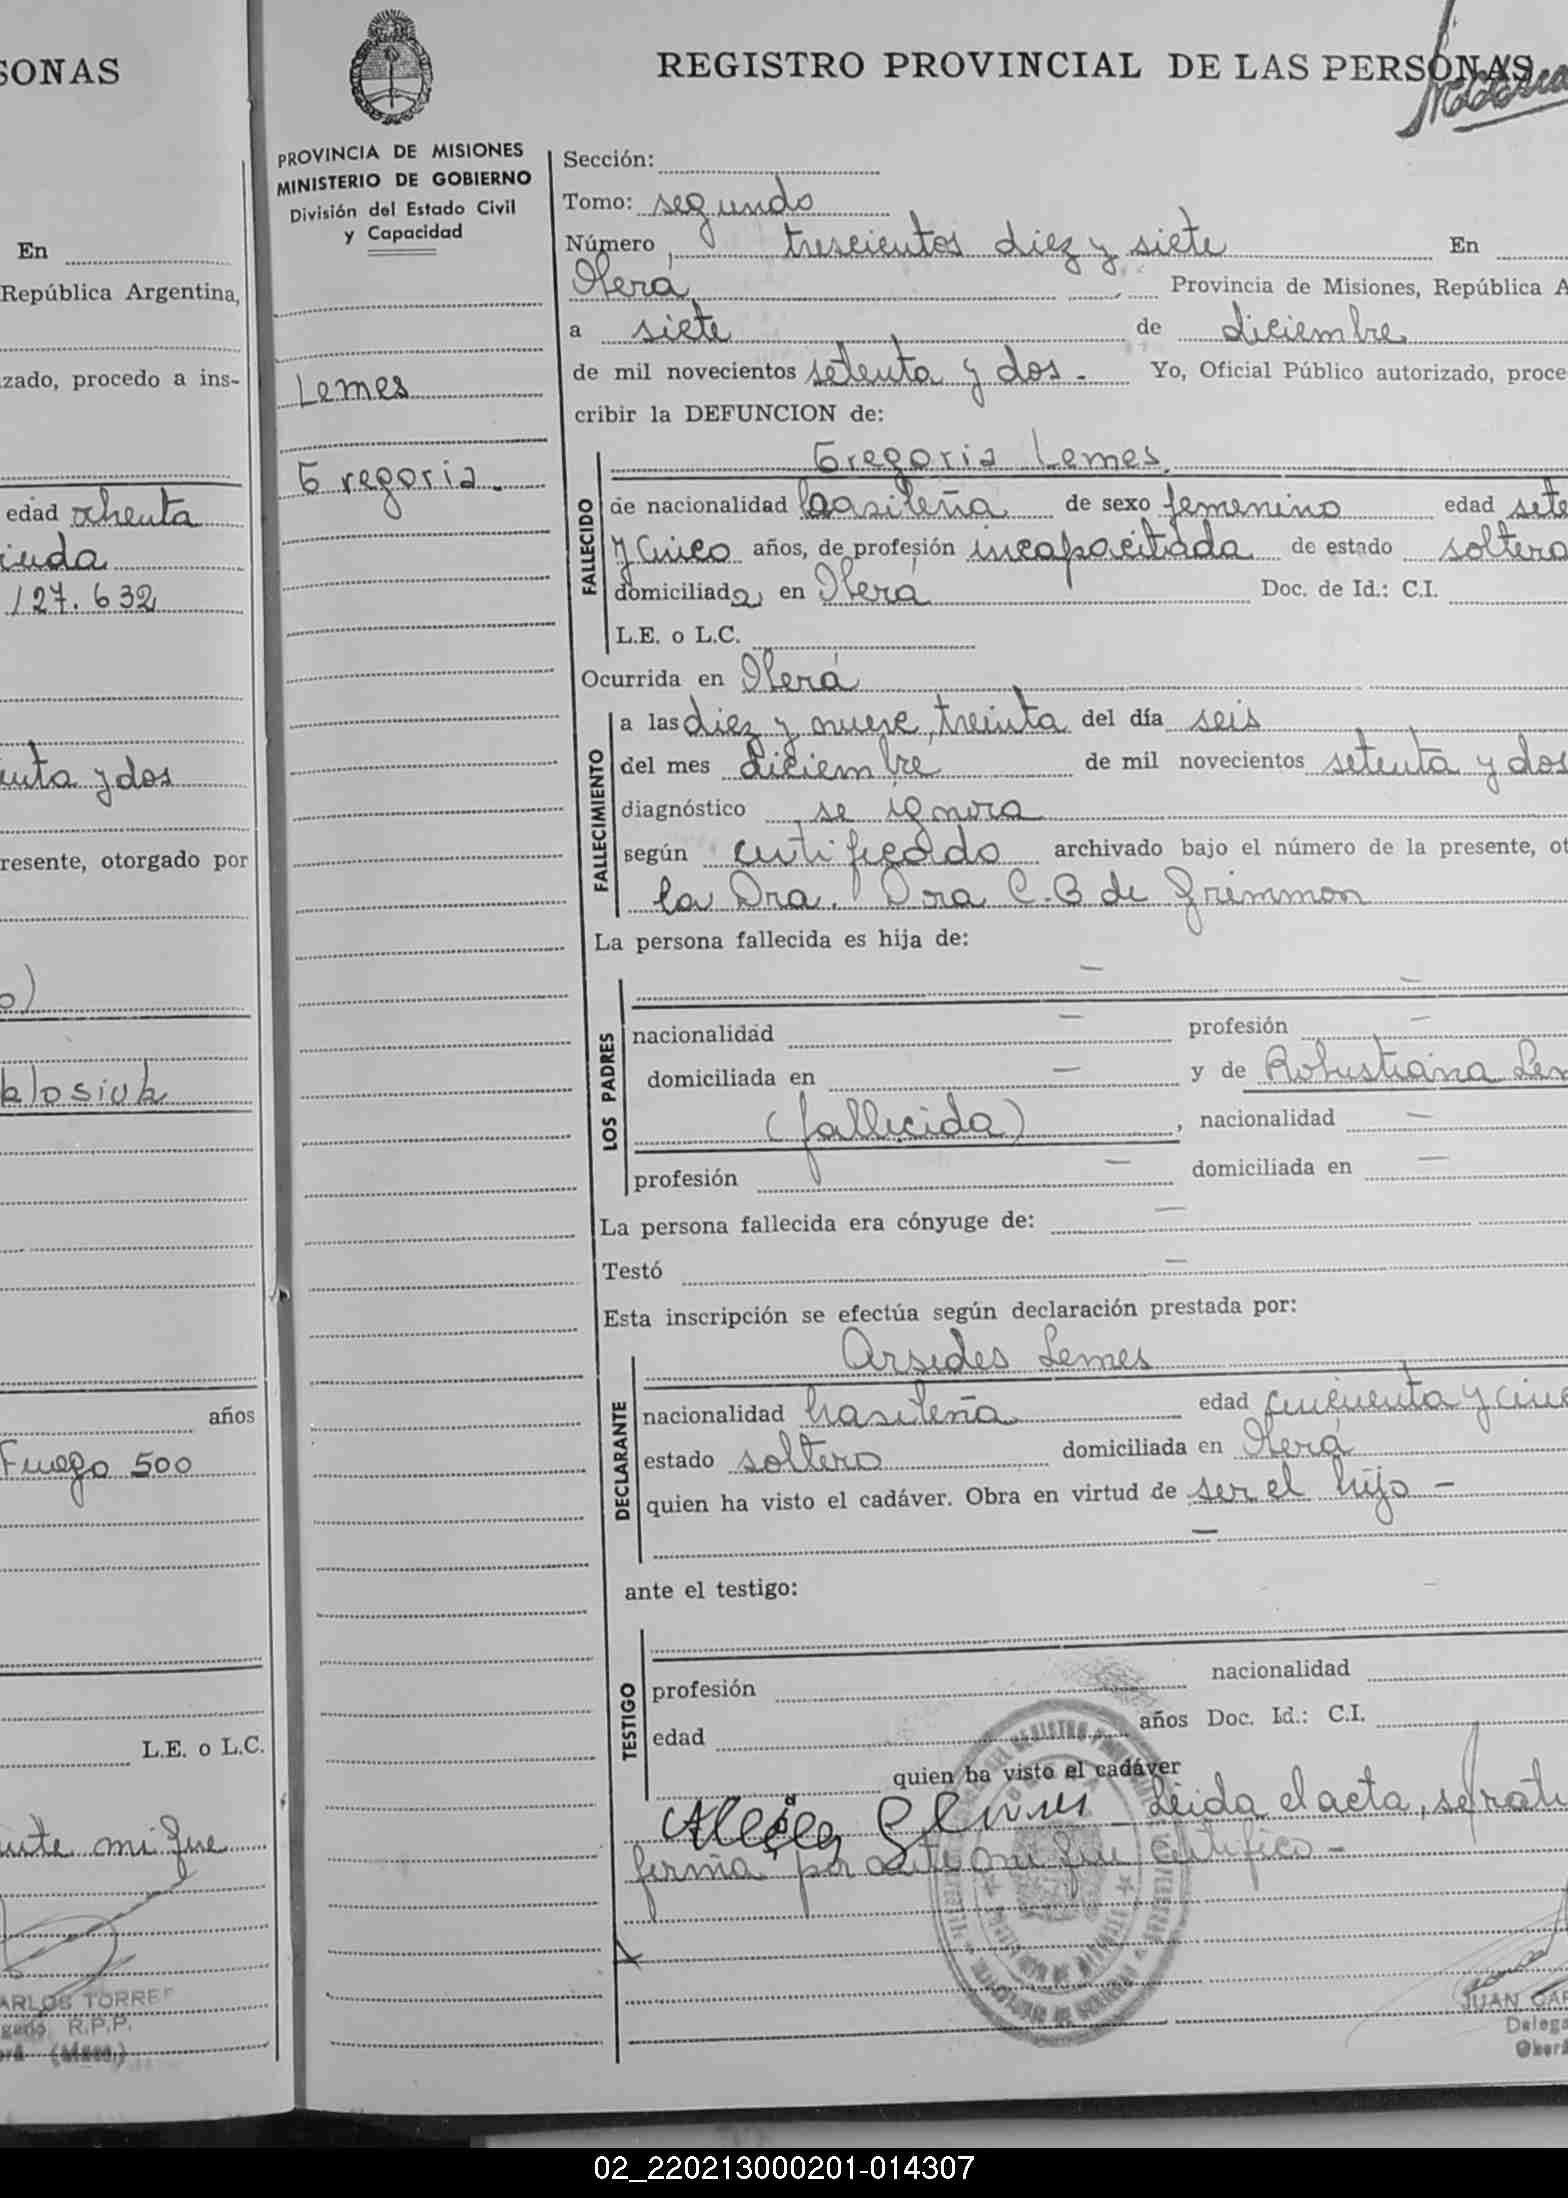 SONAS
En
República Argentina,
zado, procedo a ins-
edad ochenta
iuda
127.632
enta y dos
resente, otorgado por
o)
klosiuk
años
Fuego 500
L.E. o L.C.
ante mi que
ARLOS TORRE
R.P.P.
REGISTRO PROVINCIAL DE LAS PERSONAS
PROVINCIA DE MISIONES
MINISTERIO DE GOBIERNO
División del Estado Civil
y Capacidad
Lemes
Gregoria.
Sección:
Tomo: segundo
Número trescientos diez y siete En
Oberá Provincia de Misiones, República A
a siete de diciembre
de mil novecientos setenta y dos - Yo, Oficial Público autorizado, proce
cribir la DEFUNCION de:
Gregoria Lemes
FALLECIDO
de nacionalidad brasileña de sexo femenino edad sete
y cinco años, de profesión incapacitada de estado soltera
domiciliada en Oberá Doc. de Id.: C.I.
L.E. o L.C.
Ocurrida en Oberá
FALLECIMIENTO
a las diez y nueve, treinta del día seis
del mes diciembre de mil novecientos setenta y dos
diagnóstico se ignora
según certificado archivado bajo el número de la presente, ot
la Dra. Dora C. B de Grimmon
La persona fallecida es hija de:
LOS PADRES
nacionalidad — profesión —
domiciliada en — y de Robustiana Lem
(fallecida), nacionalidad —
profesión — domiciliada en —
La persona fallecida era cónyuge de: —
Testó —
Esta inscripción se efectúa según declaración prestada por:
Arsides Lemes
DECLARANTE
nacionalidad brasileña edad cincuenta y cinc
estado soltero domiciliada en Oberá
quien ha visto el cadáver. Obra en virtud de ser el hijo -
—
ante el testigo:
TESTIGO
profesión nacionalidad
edad años Doc. Id.: C.I.
quien ha visto el cadáver
Leida el acta, se rati
firma por ante mi que certifico -
JUAN CAR
Delega
Oberá
02_220213000201-014307